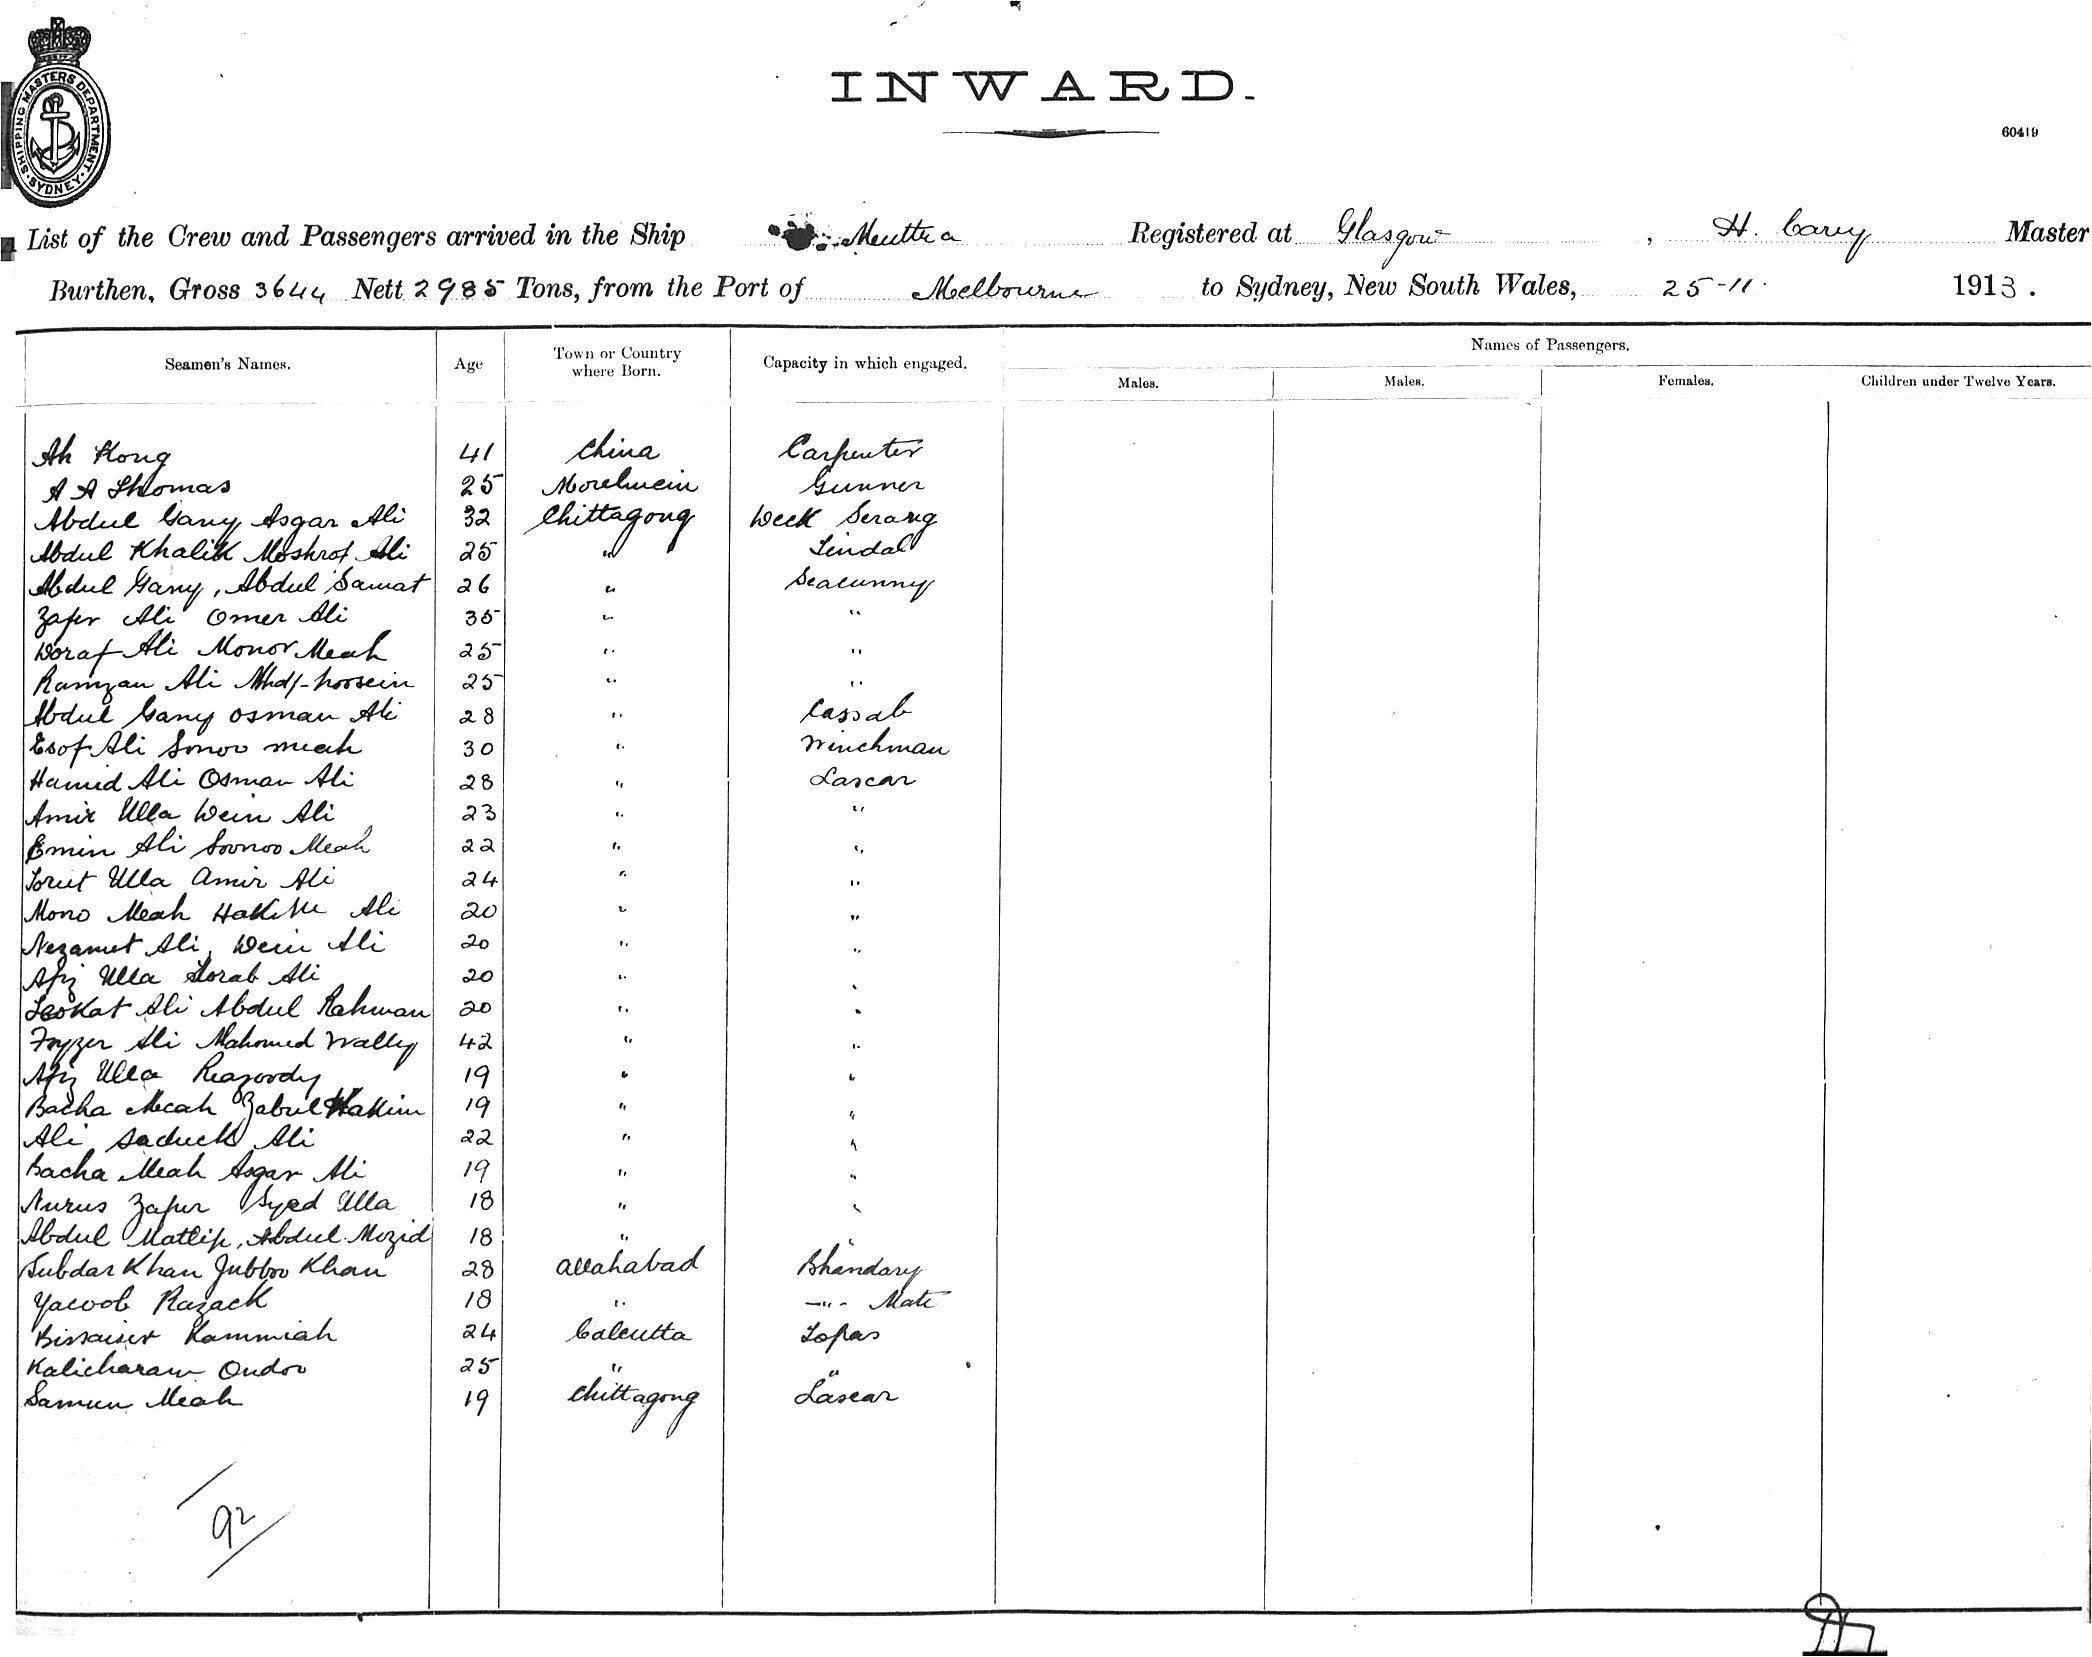 SHIPPING MASTERS DEPARTMENT. SYDNEY.
INWARD.
60419
List of the Crew and Passengers arrived in the Ship Muttra Registered at Glasgow, H. Cary Master
Burthen, Gross 3644 Nett 2985 Tons, from the Port of Melbourne to Sydney, New South Wales, 25-11. 1913.
Seamen's Names. Age Town or Country where Born. Capacity in which engaged. Names of Passengers.
Males. Males. Females. Children under Twelve Years.
Ah Kong 41 China Carpenter
A A Thomas 25 Moelmein Gunner
Abdul Gany Asgar Ali 32 Chittagong Deck Serang
Abdul Khalik Moshrof Ali 25 " Tindal
Abdul Gany, Abdul Samat 26 " Seacunny
Zafer Ali Omer Ali 35 " "
Doraf Ali Monor Meah 25 " "
Ramzan Ali Mhd/-hossein 25 " "
Abdul Gany Osman Ali 28 " Cassab
Esof Ali Sonoo meah 30 " Winchman
Hamid Ali Osman Ali 28 " Lascar
Amir Ulla Dein Ali 23 " "
Emin Ali Soonoo Meah 22 " "
Torut Ulla Amir Ali 24 " "
Mono Meah Hakim Ali 20 " "
Nezamet Ali, Dein Ali 20 " "
Afiz Ulla Torab Ali 20 " "
Leokat Ali Abdul Rahman 20 " "
Foyzer Ali Mahomed Wally 42 " "
Afiz Ulla Reazoody 19 " "
Bacha Meah Zabul Hakim 19 " "
Ali Saduck Ali 22 " "
Bacha Meah Asgar Ali 19 " "
Nurus Zafer Syed Ulla 18 " "
Abdul Matlip, Abdul Mozid 18 " "
Subdar Khan Jubboo Khan 28 Allahabad Bhandary
Yacoob Razack 18 " -"- Mate
Kammiah 24 Calcutta Topas
Kalicharan Oudoo 25 " "
Samun Meah 19 Chittagong Lascar
92